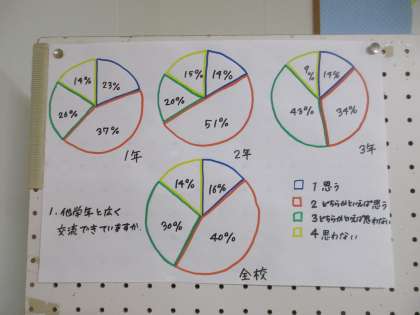 14% 23%
26%
37%
1年
15% 14%
20%
51%
2年
9% 14%
43% 34%
3年
14% 16%
30%
40%
全校
1. 他学年と広く
交流できていますか.
1 思う
2 どちらかといえば思う
3 どちらかといえば思わない
4 思わない